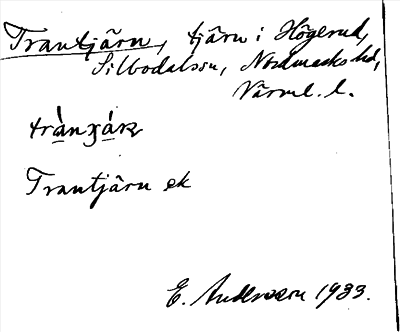 Trantjärn, tjärn i Högerud,
Silbodalssn, Nordmarks hd,
Värml. l.
Trantjärn ek
E. Andersson 1933.